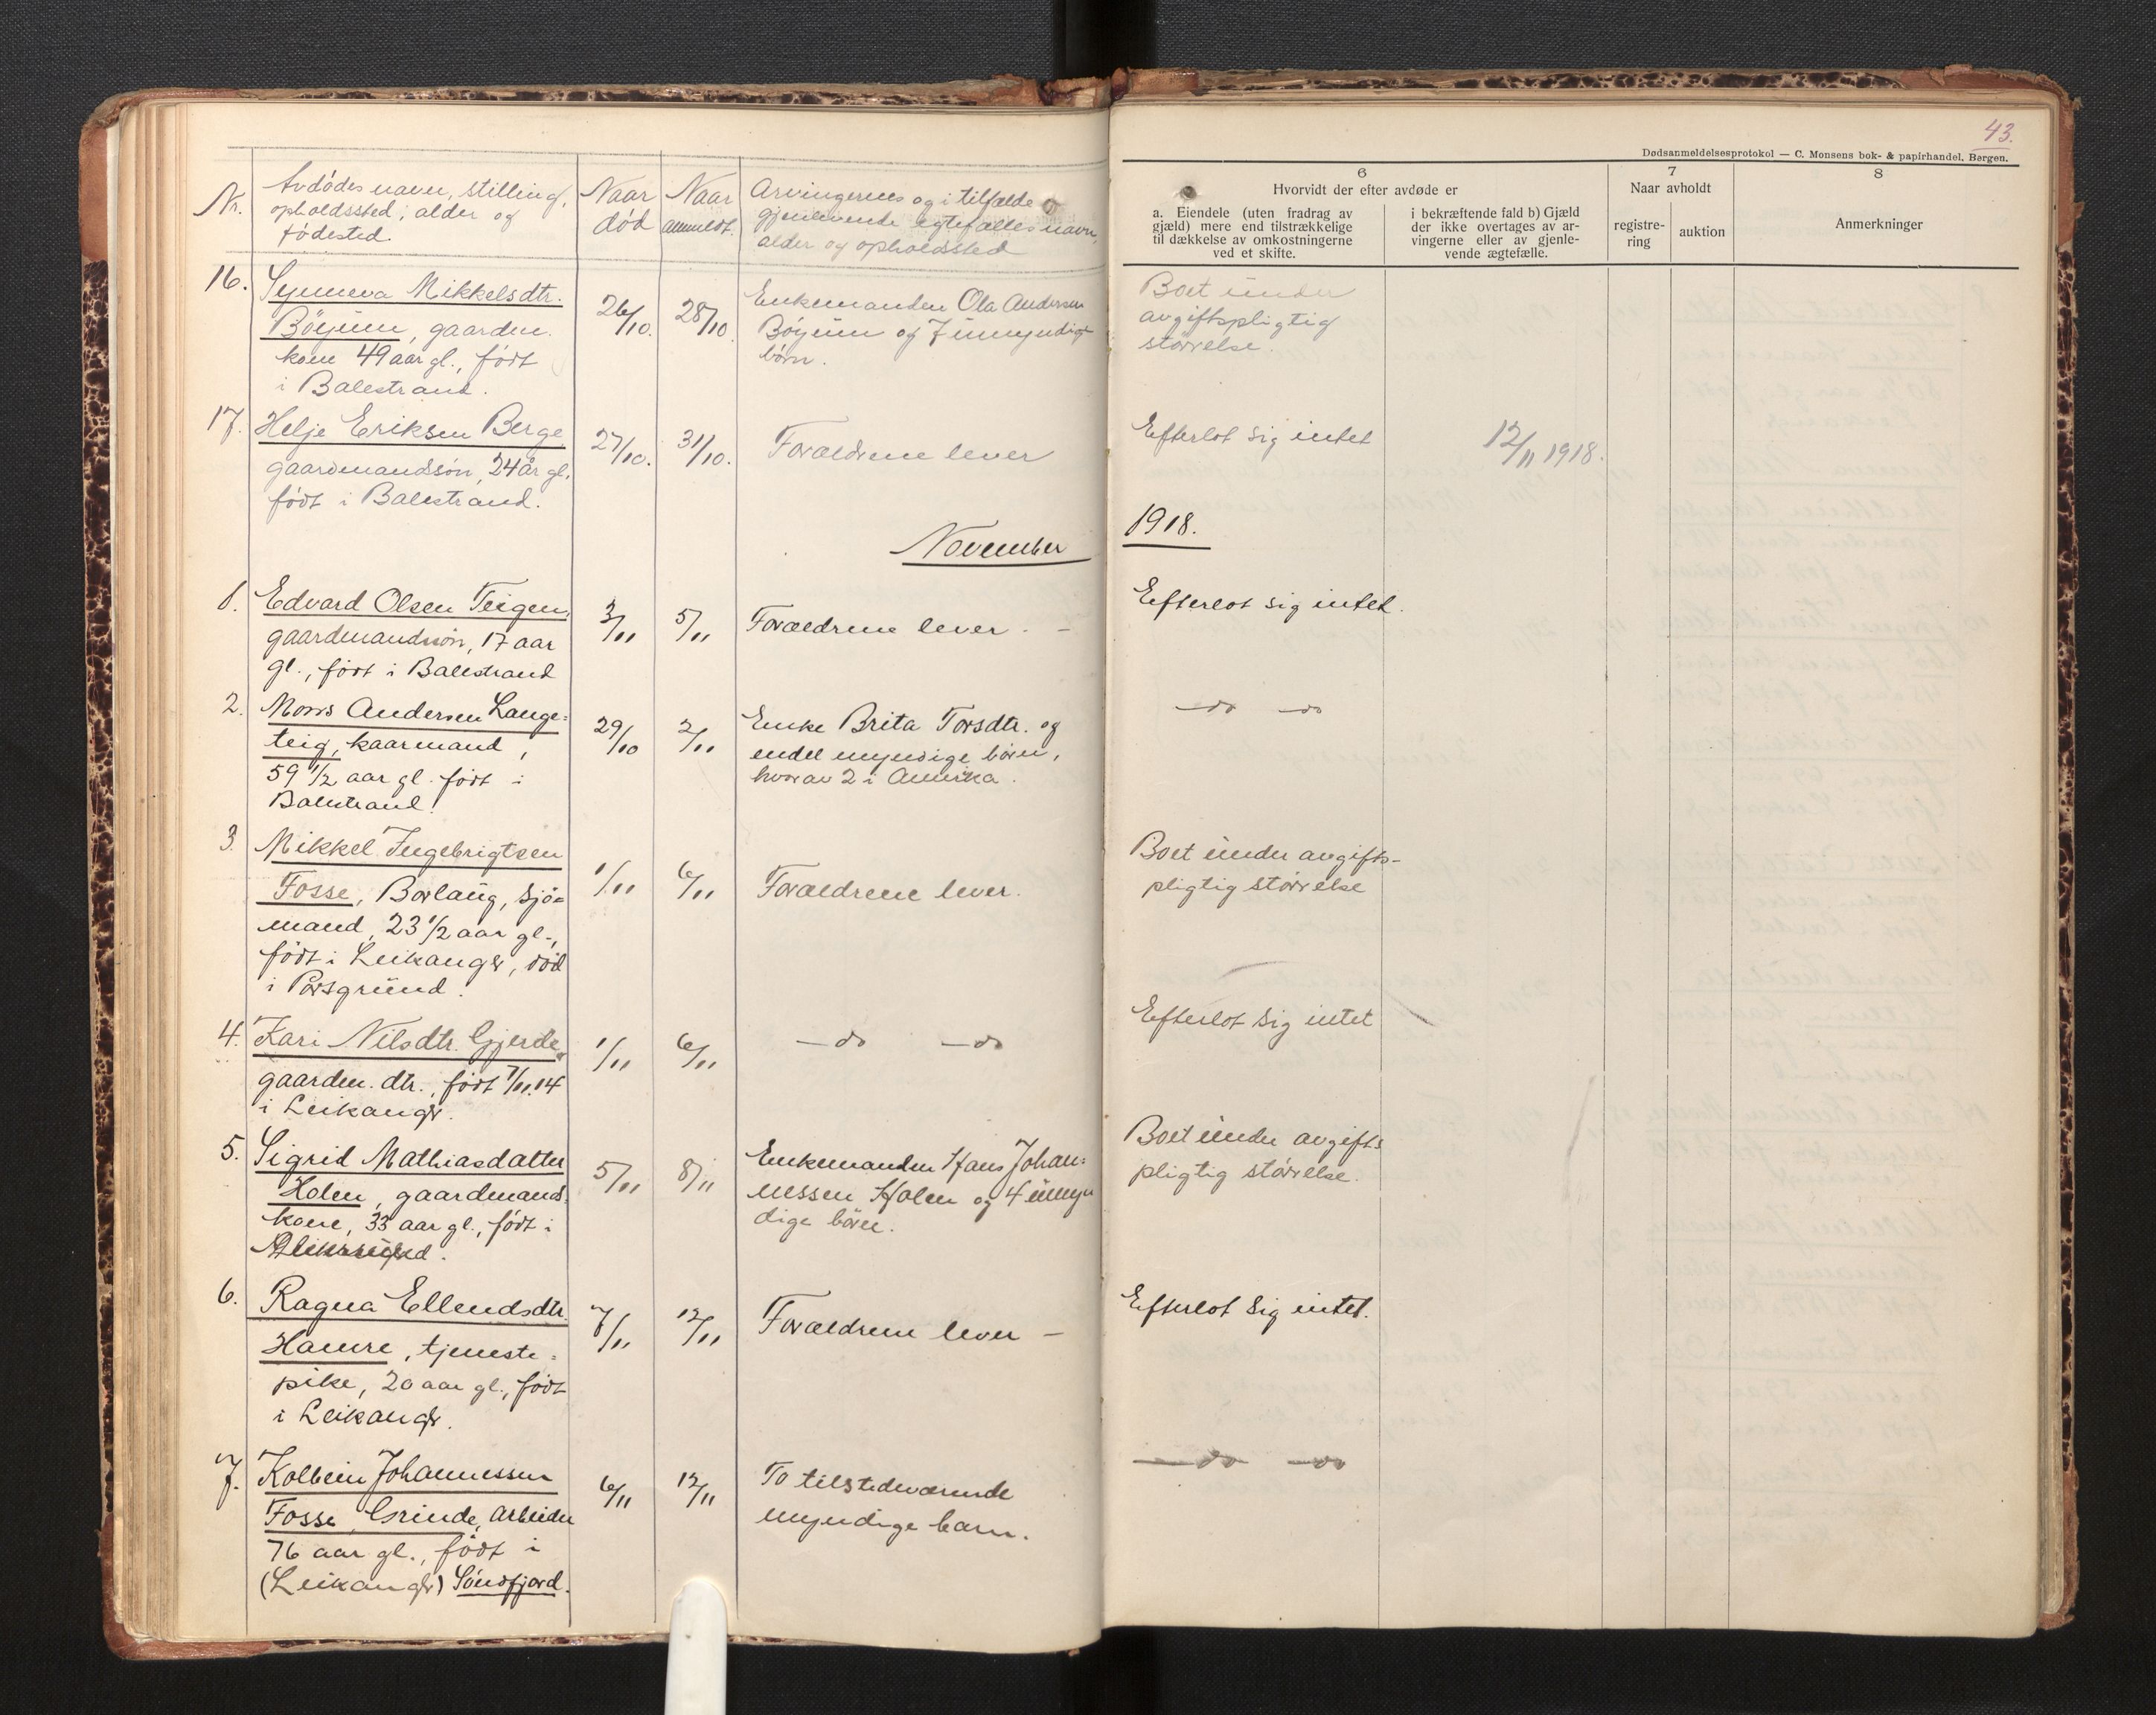 43.
Dødsanmeldelsesprotokol — C. Monsens bok- & papirhandel, Bergen.
Nr.
Avdødes navn, stilling,
opholdssted, alder og
fødested.
Naar
død
Naar
anmeldt.
Arvingernes og i tilfælde
gjenlevende egtefælles navn,
alder og opholdssted
6
Hvorvidt der efter avdøde er
a. Eiendele (uten fradrag av
gjæld) mere end tilstrækkelige
til dækkelse av omkostningerne
ved et skifte.
i bekræftende fald b) Gjæld
der ikke overtages av ar-
vingerne eller av gjenle-
vende ægtefælle.
7
Naar avholdt
registre-
ring
auktion
8
Anmerkninger
16.
Synneva Mikkelsdtr.
Böyum, gaardm.
kone 49 aar gl., født
i Balestrand.
26/10.
28/10.
Enkemanden Ola Andersen
Böyum og 7 umyndige
børn.
Boet under
avgiftspligtig
størrelse.
17.
Helje Eriksen Berge
gaardmandsøn, 24 år gl.
født i Balestrand.
27/10.
31/10.
Forældrene lever
Efterlot sig intet
12/11 1918.
November
1918.
1.
Edvard Olsen Teigen,
gaardmandsøn, 17 aar
gl., født i Balestrand
3/11
5/11
Forældrene lever. —
Efterlot sig intet.
2.
Mons Andersen Lange=
teig, kaarmand,
59 1/2 aar gl. født i
Balestrand.
29/10
2/11
Enke Brita Torsdtr. og
endel myndige børn,
hvorav 2 i Amerika.
— do — do
3.
Mikkel Ingebrigtsen
Fosse, Borlaug, sjø=
mand, 23 1/2 aar gl.,
født i Leikanger, død
i Porsgrund.
1/11
6/11
Forældrene lever.
Boet under avgifts-
pligtig størrelse
4.
Kari Nilsdtr. Gjerde,
gaardm. dtr., født 7/11.14
i Leikanger.
1/11
6/11
— do — do
Efterlot sig intet
5.
Sigrid Mathiasdatter
Holen, gaardmands
kone, 33 aar gl., født i
5/11
8/11
Enkemanden Hans Johan=
nessen Holen og 4 umyn
dige børn.
Boet under avgifts
pligtig størrelse.
6.
Ragna Ellendsdtr.
Hamre, tjeneste=
pike, 20 aar gl., født
i Leikanger.
7/11
12/11
Forældrene lever —
Efterlot sig intet.
7.
Kolbein Johannessen
Fosse, Grinde, arbeider
76 aar gl., født i
(Leikanger) Søndfjord.
6/11
12/11
To tilstedeværende
myndige barn.
— do — do